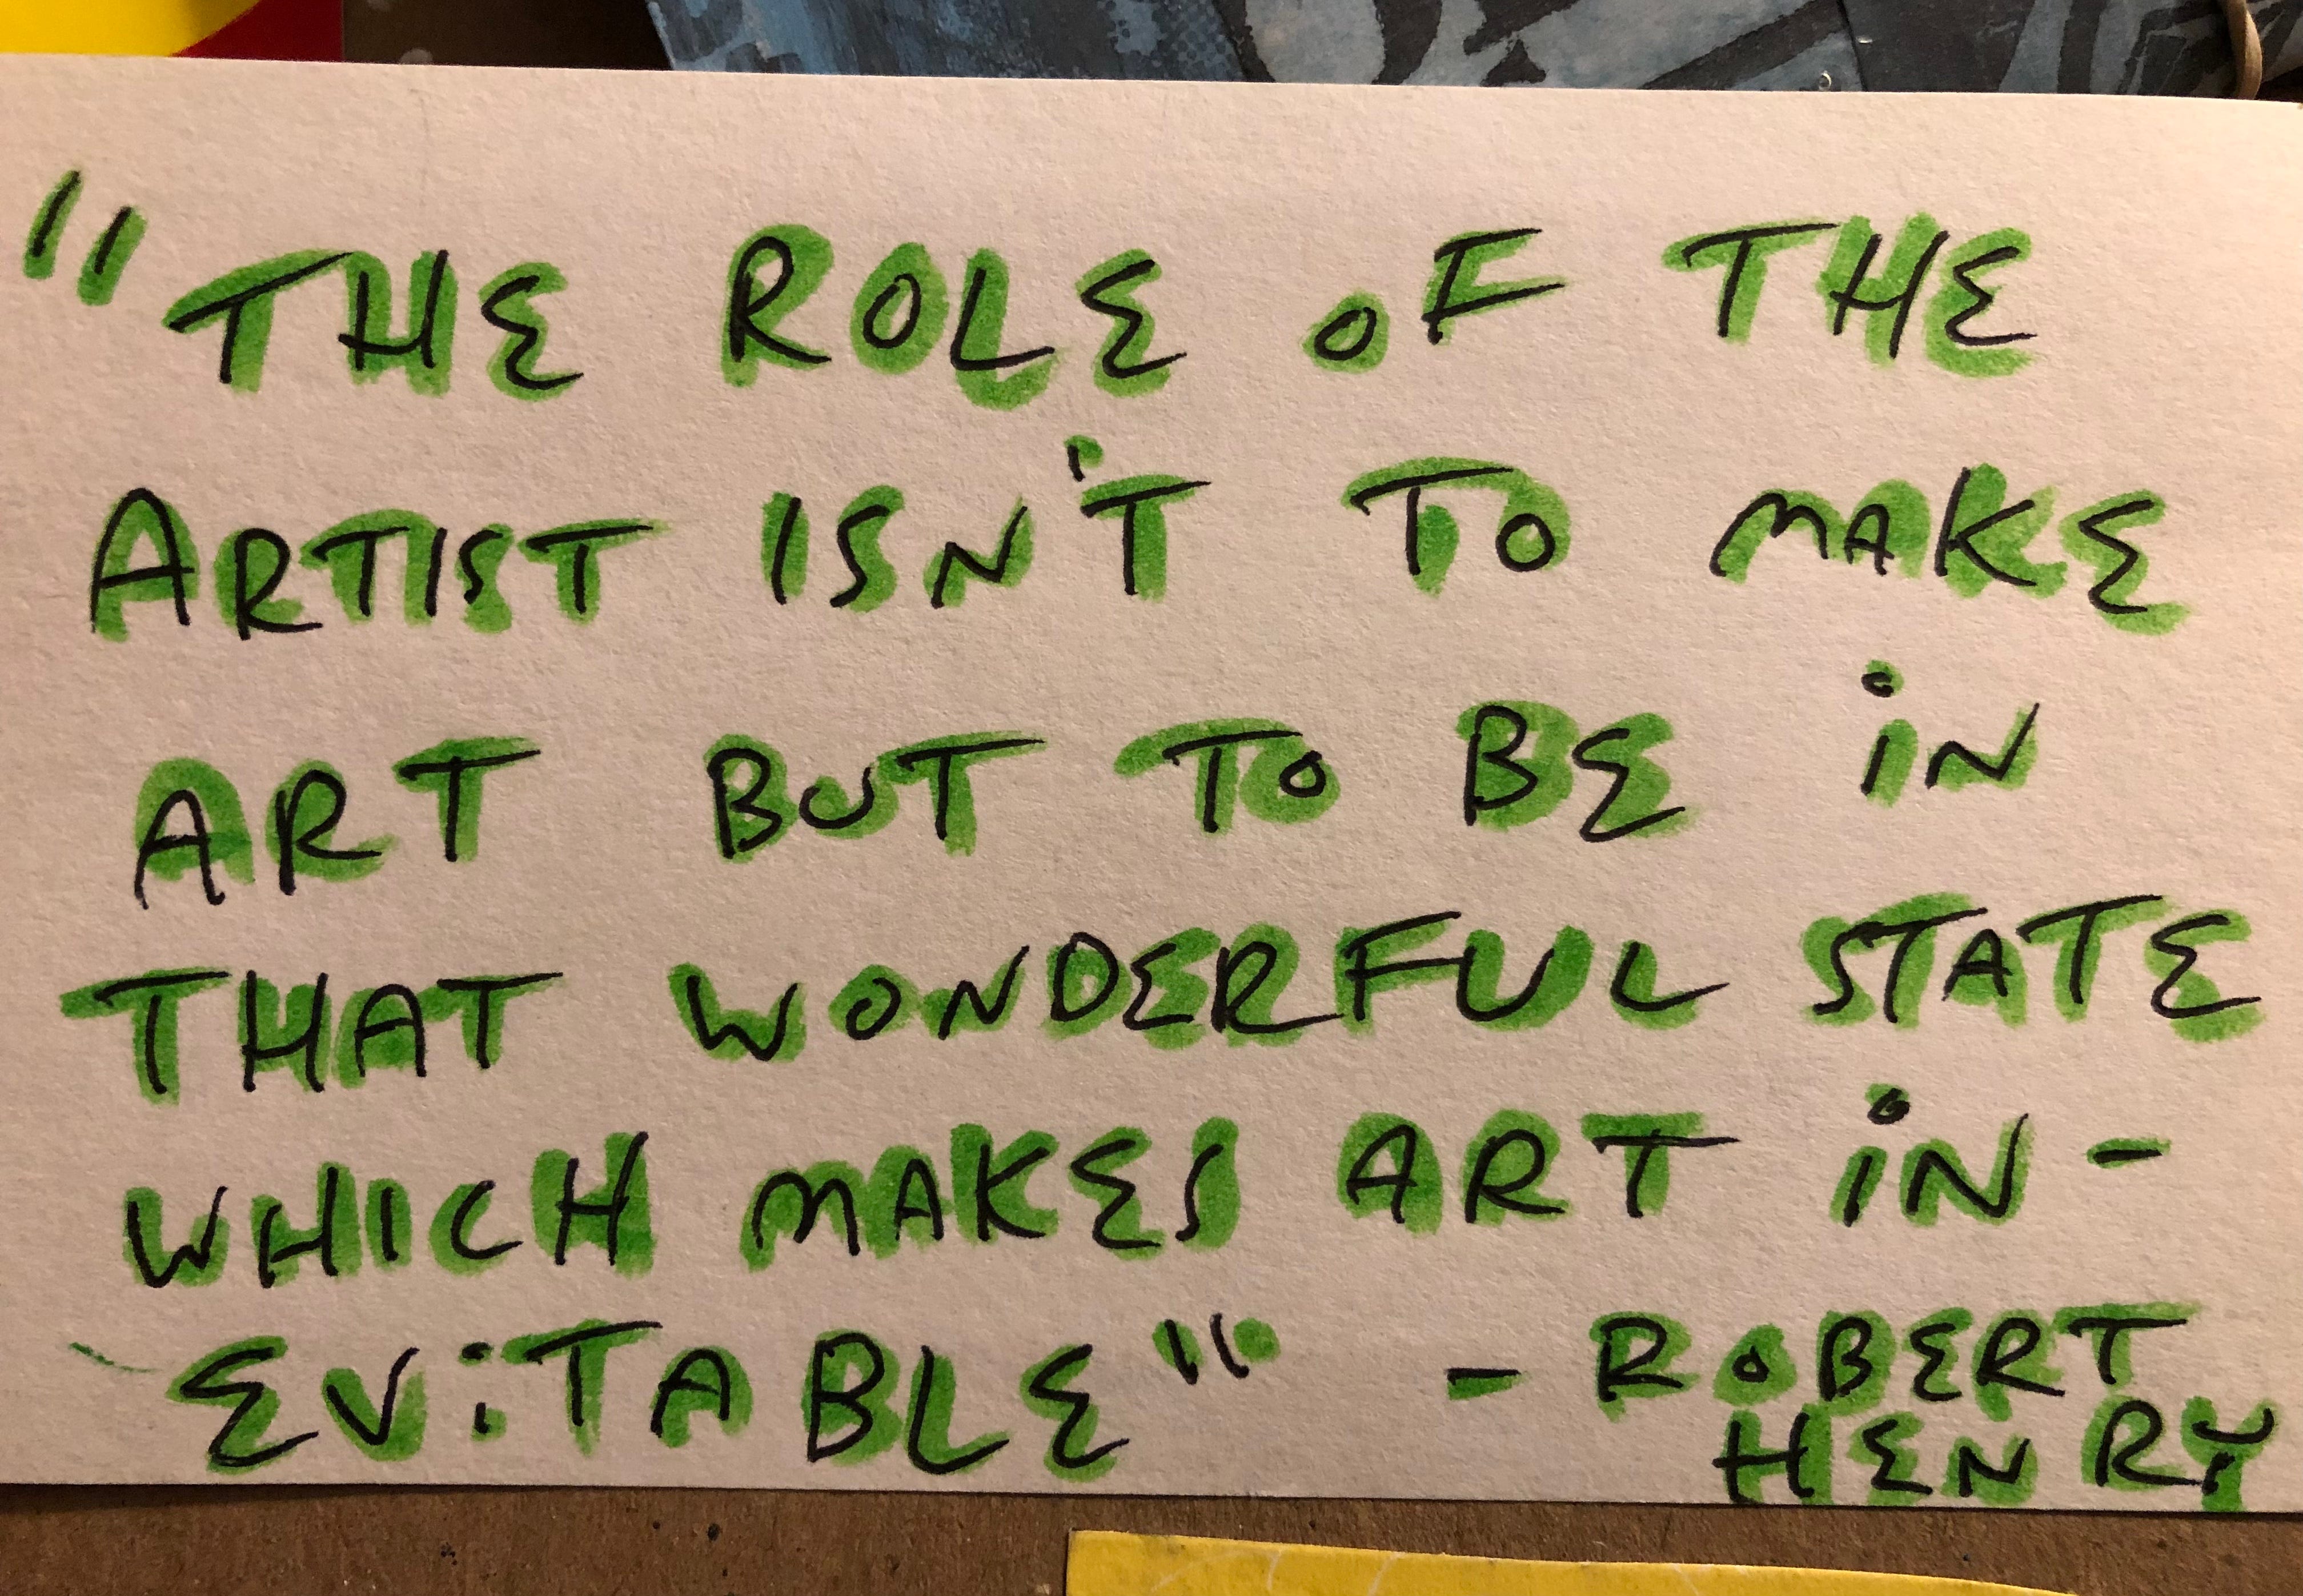 "THE ROLE OF THE
ARTIST ISN'T TO MAKE
ART BUT TO BE iN
THAT WONDERFUL STATE
WHICH MAKES ART iN-
EViTABLE" - ROBERT
HENRY